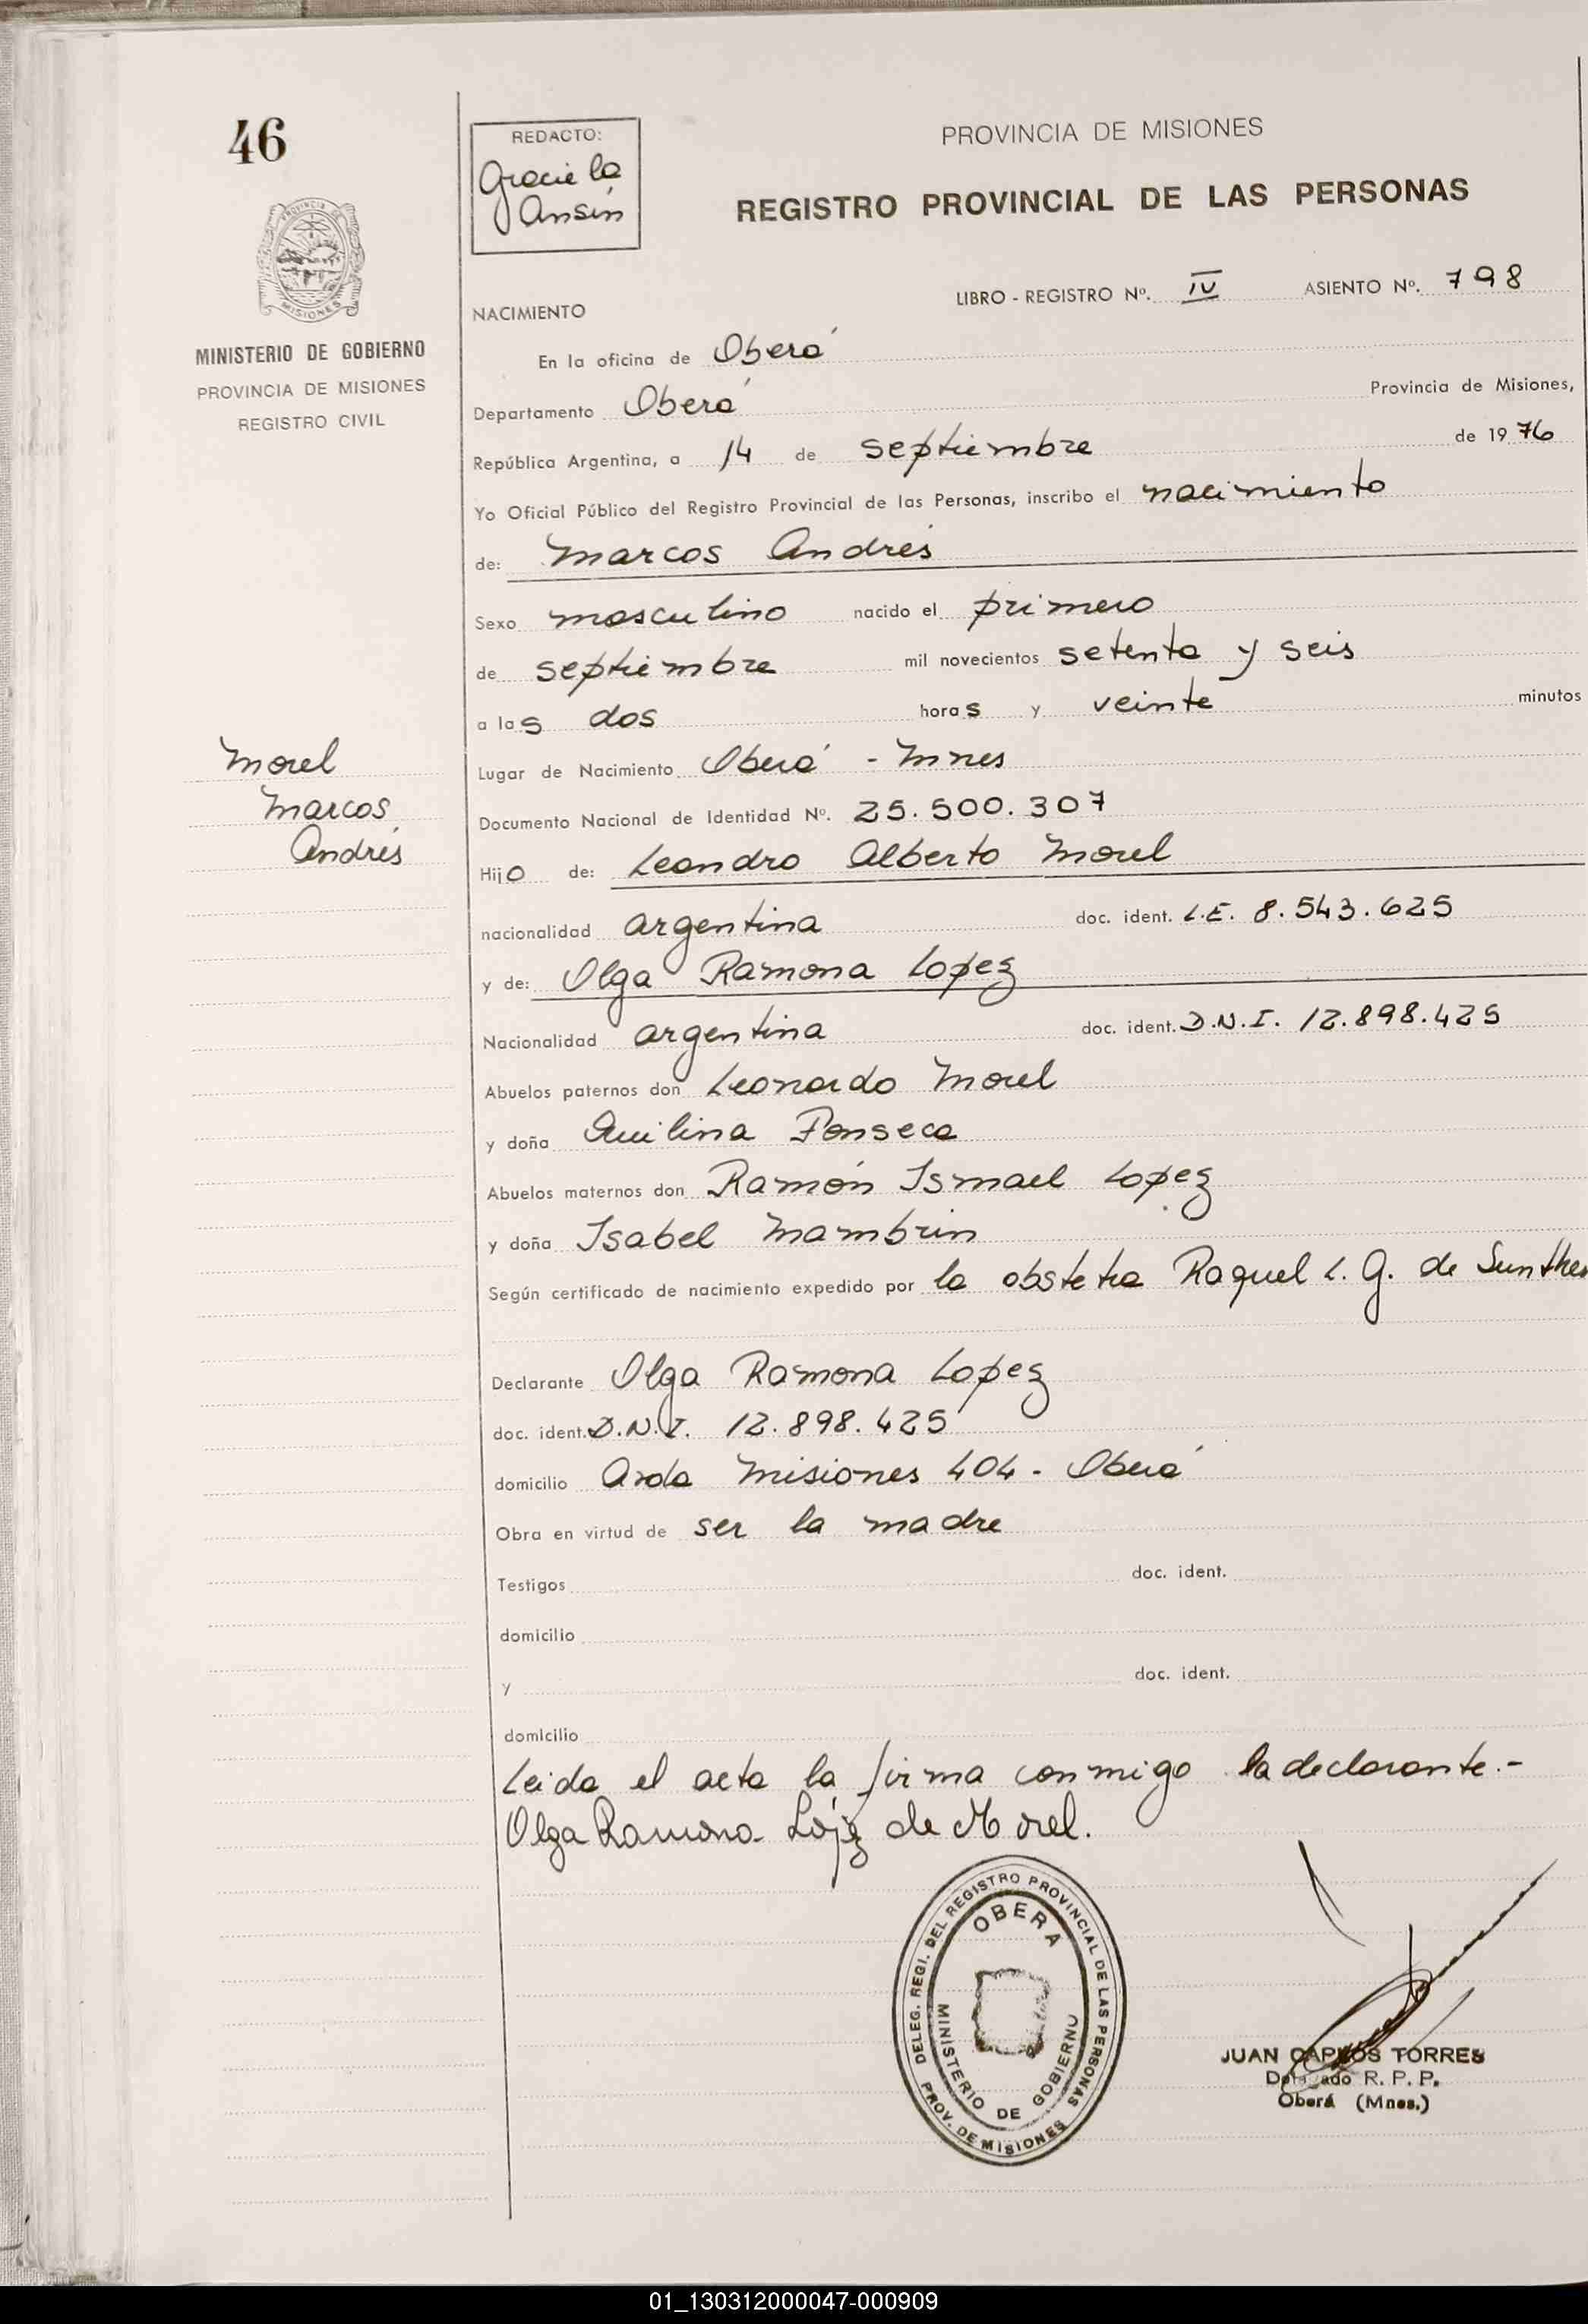 46
PROVINCIA DE MISIONES
MINISTERIO DE GOBIERNO
PROVINCIA DE MISIONES
REGISTRO CIVIL
REDACTO:
Graciela
Ansin
PROVINCIA DE MISIONES
REGISTRO PROVINCIAL DE LAS PERSONAS
LIBRO - REGISTRO Nº. IV ASIENTO Nº. 798
NACIMIENTO
En la oficina de Oberá
Departamento Oberá Provincia de Misiones,
República Argentina, a 14 de septiembre de 1976
Yo Oficial Público del Registro Provincial de las Personas, inscribo el nacimiento
de: Marcos Andrés
Sexo masculino nacido el primero
de septiembre mil novecientos setenta y seis
a las dos horas y veinte minutos
Lugar de Nacimiento Oberá - Mnes
Documento Nacional de Identidad Nº. 25.500.307
Hijo de: Leandro Alberto Morel
nacionalidad argentina doc. ident. L.E. 8.543.625
y de: Olga Ramona Lopez
Nacionalidad argentina doc. ident. D.N.I. 12.898.425
Abuelos paternos don Leonardo Morel
y doña Fonseca
Abuelos maternos don Ramón Ismael Lopez
y doña Isabel Mambrin
Según certificado de nacimiento expedido por la obstetra Raquel L. G. de
Declarante Olga Ramona Lopez
doc. ident. D.N.I. 12.898.425
domicilio Avda Misiones 404 - Oberá
Obra en virtud de ser la madre
Testigos doc. ident.
domicilio
y doc. ident.
domicilio
Leida el acta la firma conmigo la declarante.-
Olga Ramona López de Morel.
Morel
Marcos
Andrés
DELEG. REGI. DEL REGISTRO PROVINCIAL DE LAS PERSONAS
OBERA
MINISTERIO DE GOBIERNO
PROV. DE MISIONES
JUAN CARLOS TORRES
Delegado R. P. P.
Oberá (Mnes.)
01_130312000047-000909